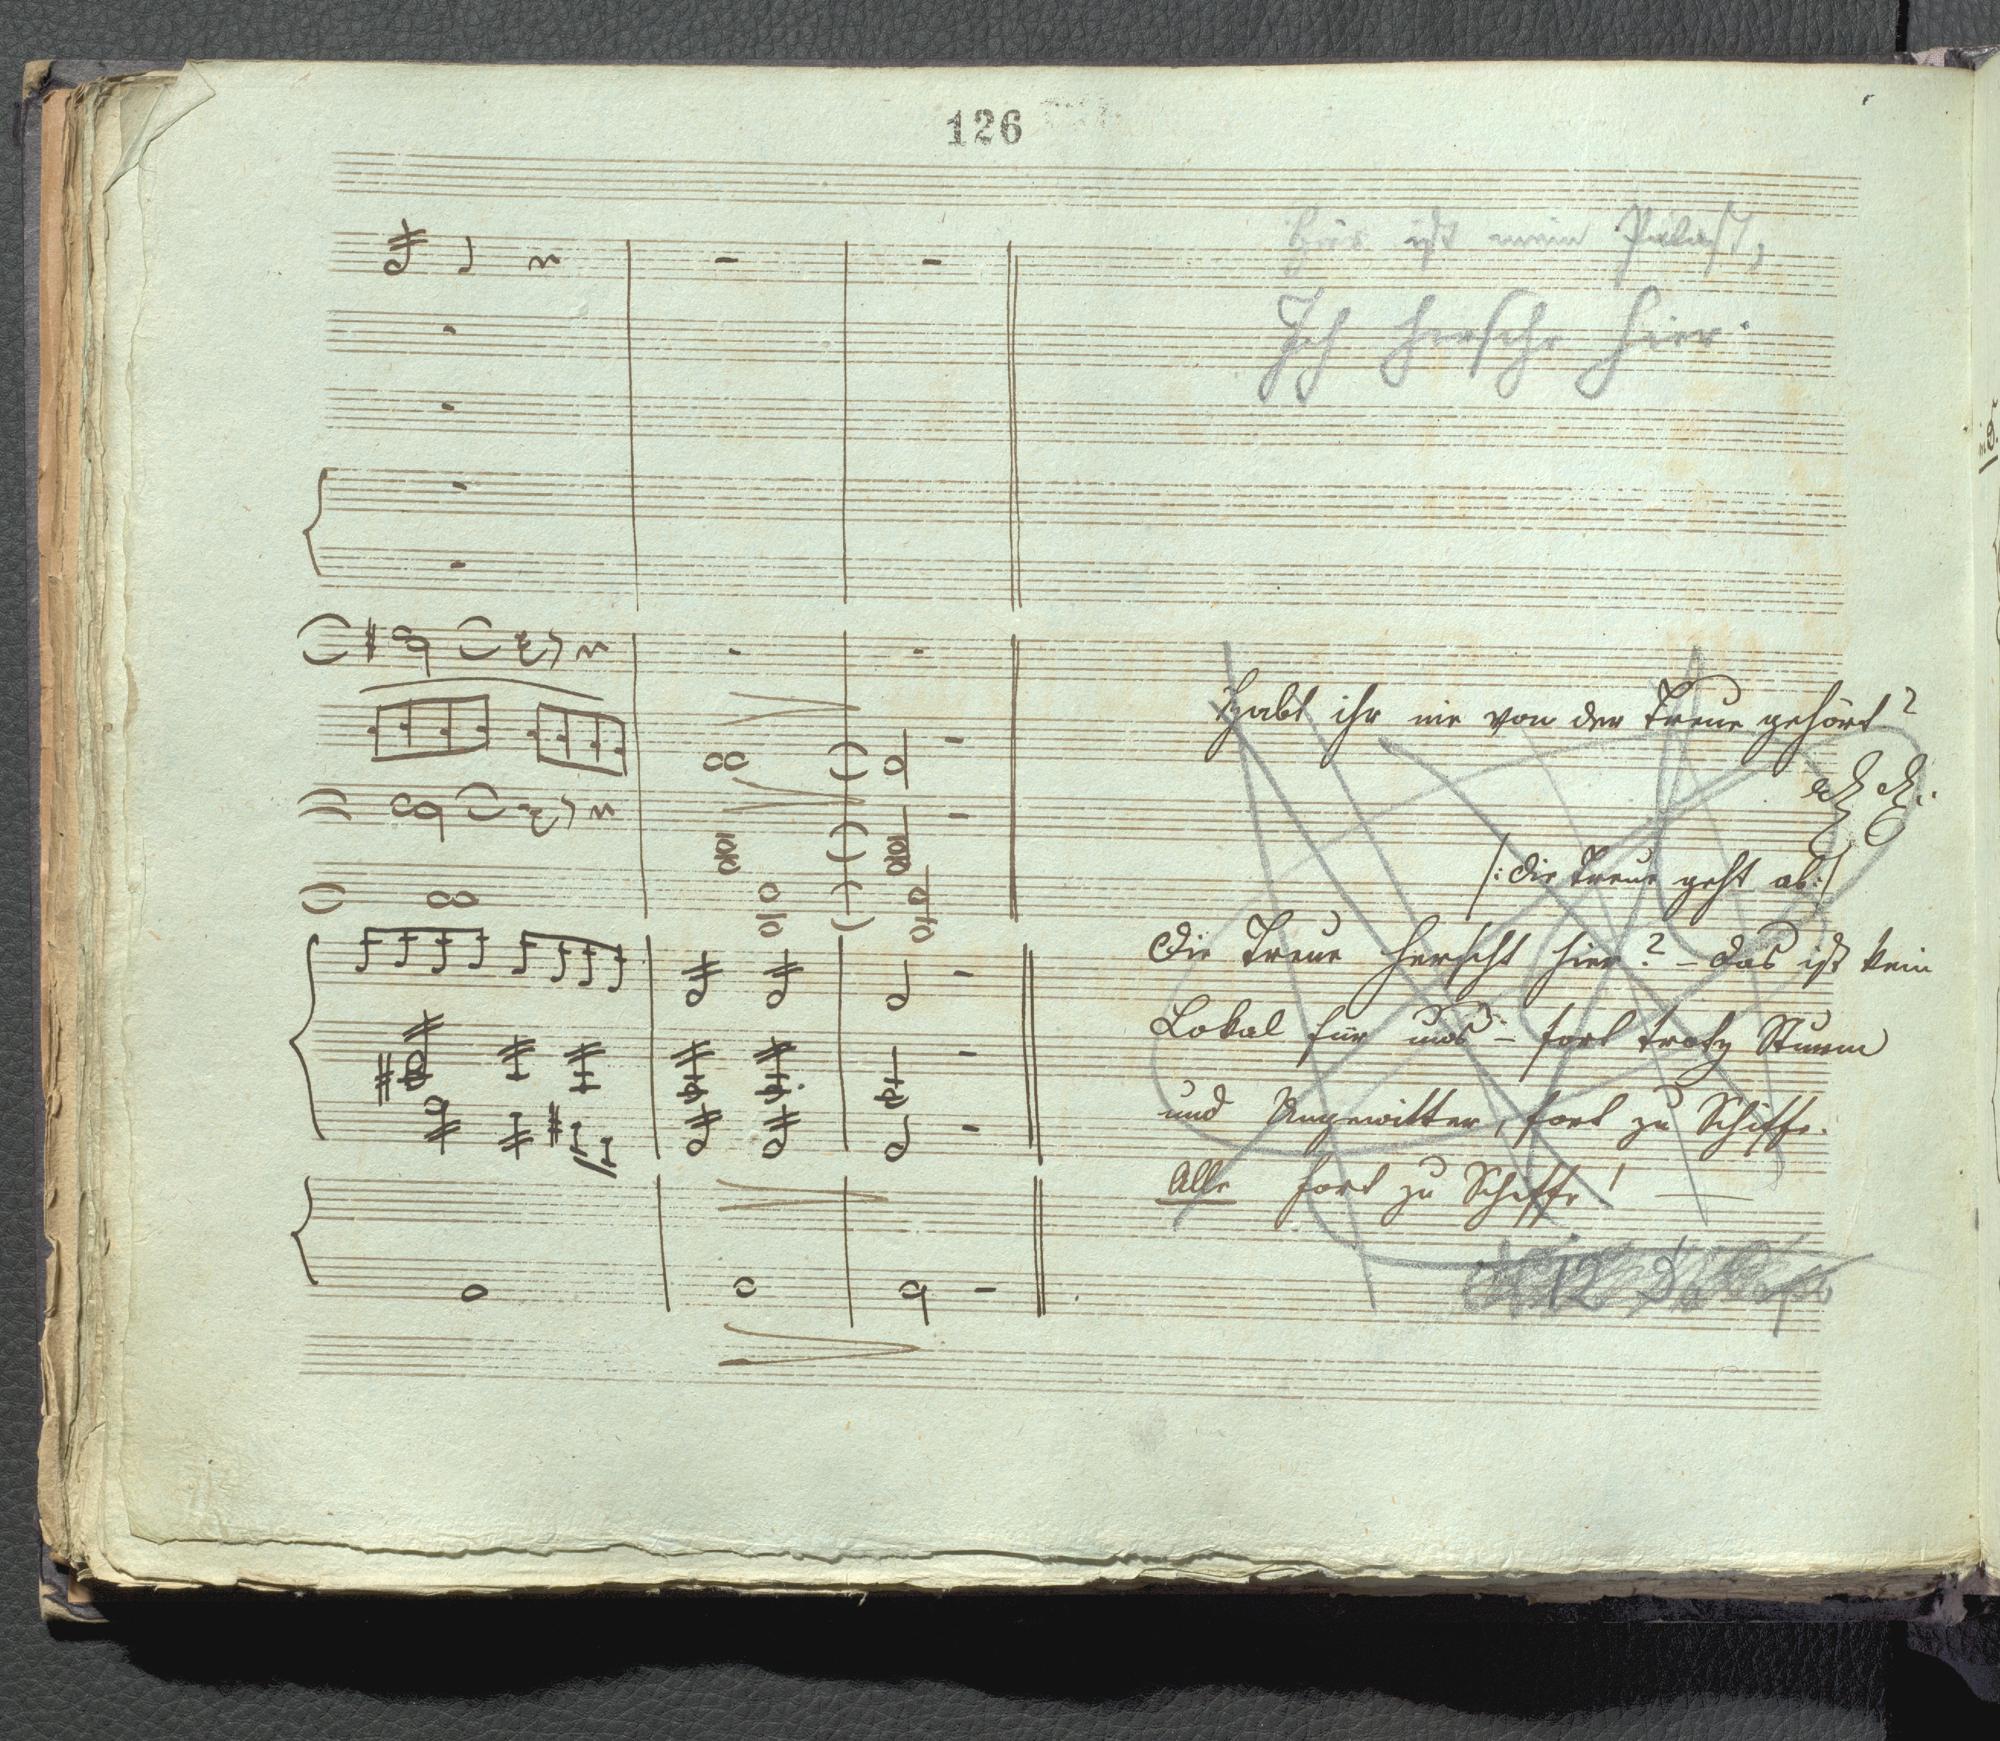 126
Hier ist mein Palast,
Ich hersche hier.
Habt ihr nie von der Treue gehört?
/: die Treue geht ab :/
Die Treue herscht hier? – das ist kein
Lokal für uns – fort trotz Sturm
und Ungewitter, fort zu Schiffe.
Alle fort zu Schiffe!
12